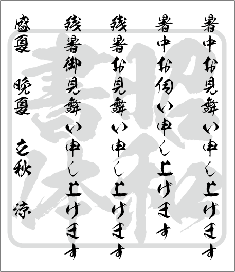 暑中お見舞い申し上げます
暑中お伺い申し上げます
残暑お見舞い申し上げます
残暑御見舞い申し上げます
盛夏 晩夏 立秋 涼
昭和書体